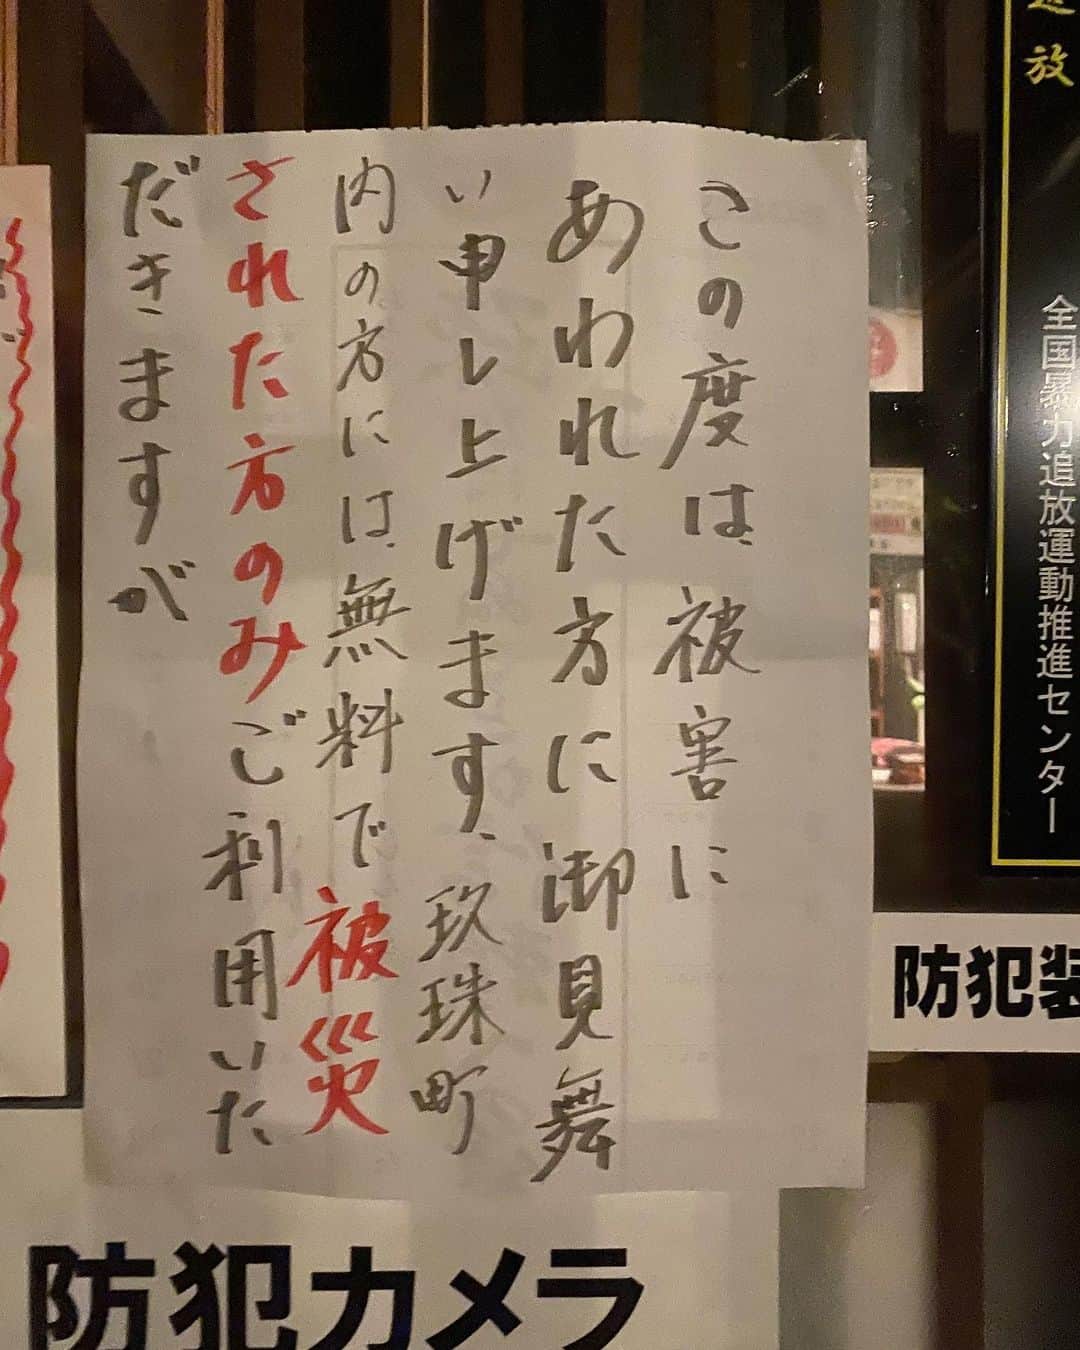 この度は、被害に
あわれた方に御見舞
い申し上げます、玖珠町
内の方には、無料で被災
された方のみご利用いた
だきますが
放
全国暴力追放運動推進センター
防犯装
防犯カメラ